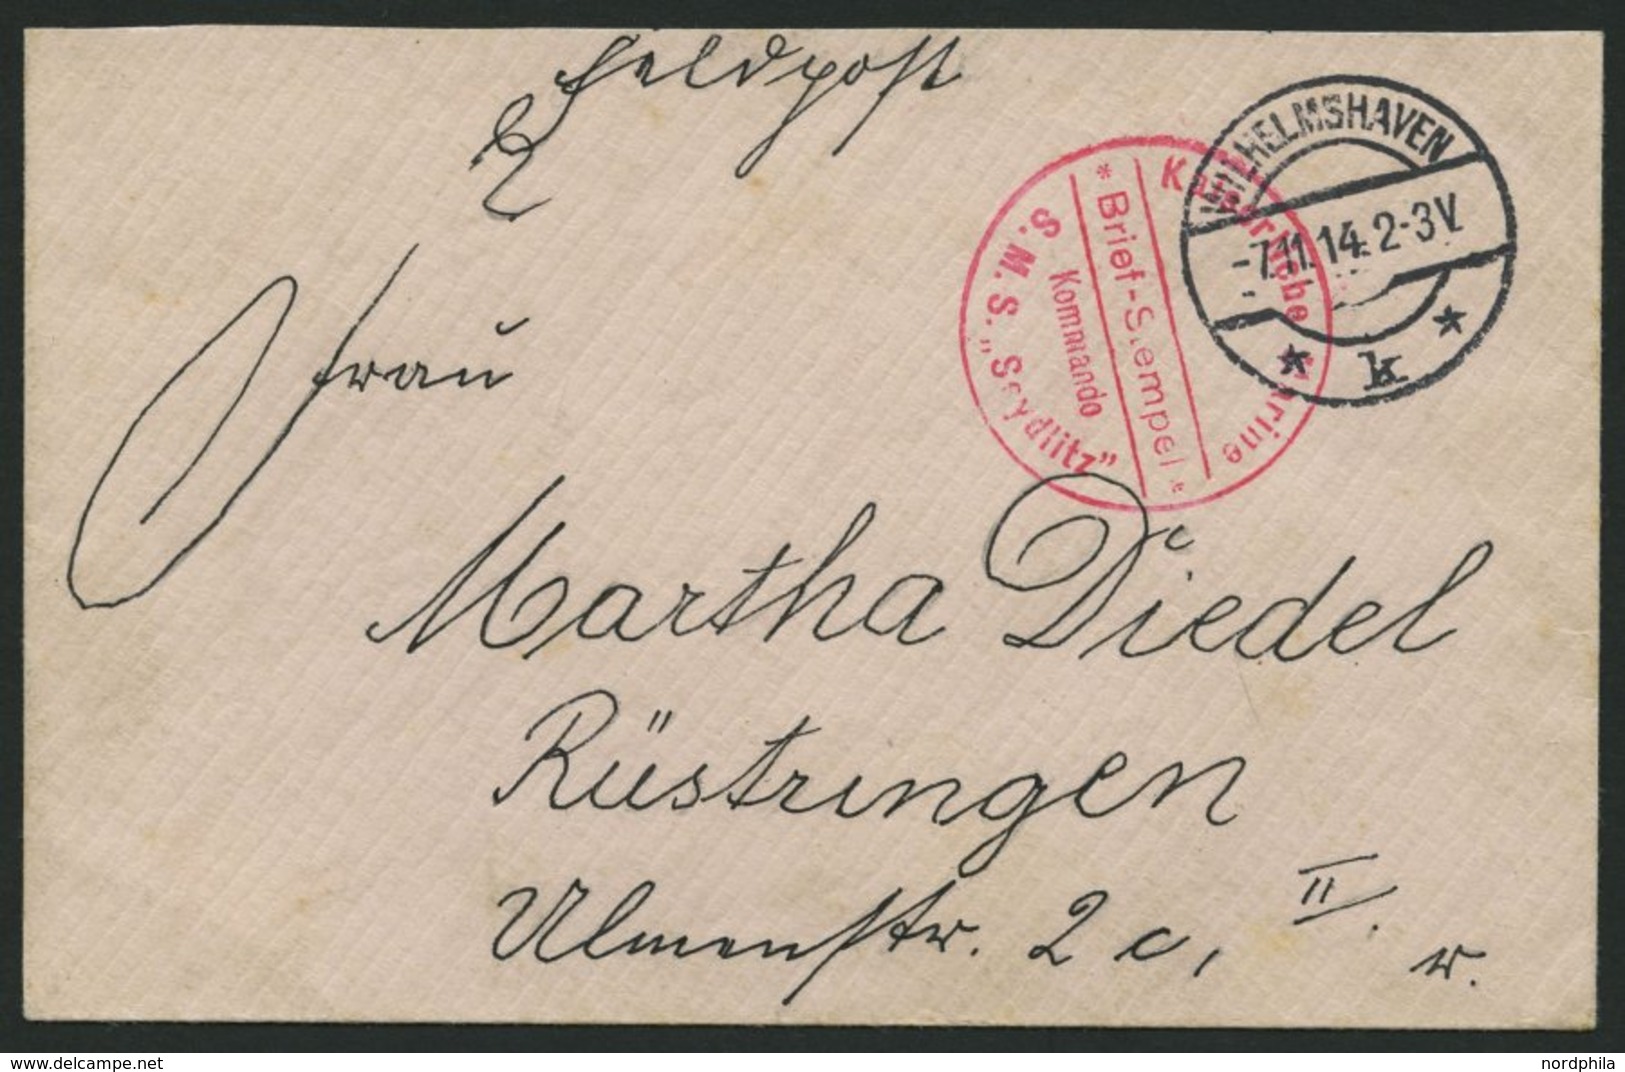 Feldpost
WILHELMSHAVEN
-7.11.14.2-3V.
* k *
Kaiserliche Marine
* Brief-Stempel *
Kommando
S.M.S. „Seydlitz"
Frau
Martha Diedel
Rüstringen
Ulmenstr. 2c, II. r.
www.delcampe.net
nordphila